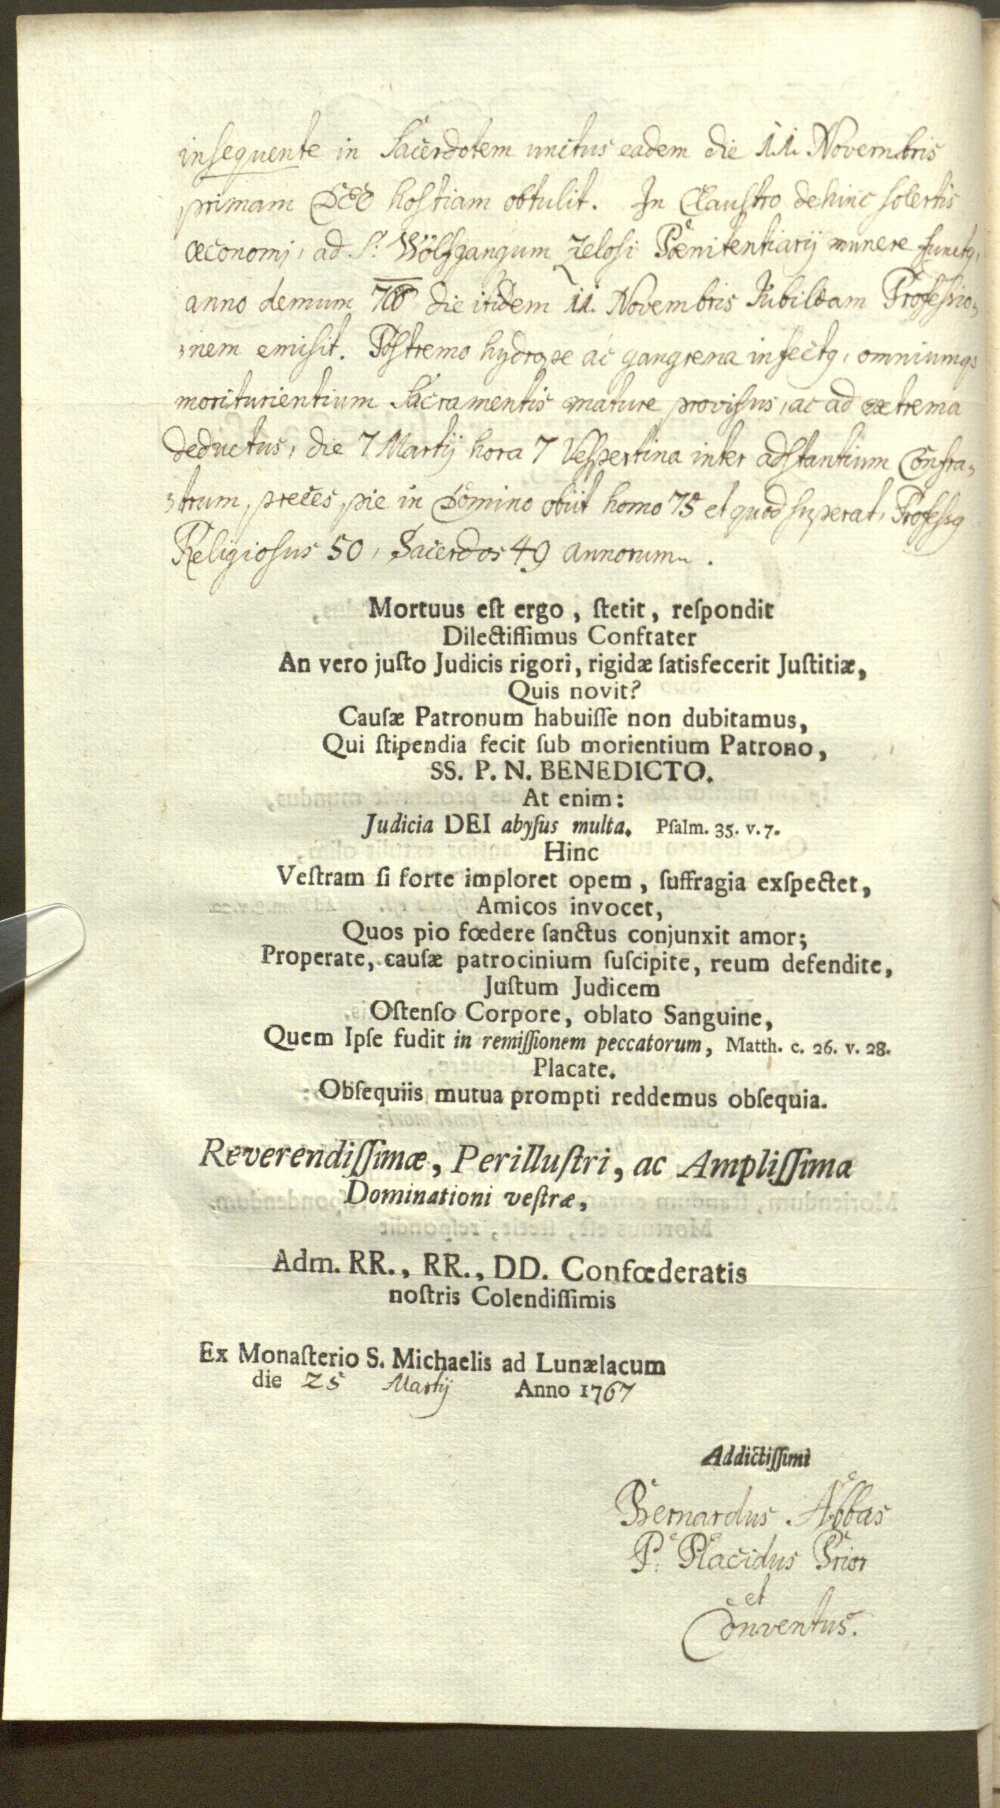 insequente in Sacerdotem unctus eadem die 11. Novembris
primam DEO hostiam obtulit. In Claustro dehinc solertis
œconomi, ad S. Wolfgangum zelosi Pœnitentiarij munere functq,
anno demum die itidem 11. Novembris Jubilæam Professio-
-nem emisit. Postremo hydrope ac gangrena infectq, omniumqs
moriturientium Sacramentis mature provisus, ac ad extrema
deductus, die 7 Martij hora 7 Vespertina inter adstantium Confra-
-trum preces, pie in Domino obiit homo 75 et quod superat, Professq
Religiosus 50, Sacerdos 49 annorum.
Mortuus eſt ergo, ſtetit, reſpondit
Dilectiſſimus Confrater
An vero juſto Judicis rigori, rigidæ ſatisfecerit Juſtitiæ,
Quis novit?
Cauſæ Patronum habuiſſe non dubitamus,
Qui ſtipendia fecit ſub morientium Patrono,
SS. P. N. BENEDICTO.
At enim:
Judicia DEI abyſus multa. Pſalm. 35. v. 7.
Hinc
Veſtram ſi forte imploret opem, ſuffragia exſpectet,
Amicos invocet,
Quos pio fœdere ſanctus conjunxit amor;
Properate, cauſæ patrocinium ſuſcipite, reum defendite,
Juſtum Judicem
Oſtenſo Corpore, oblato Sanguine,
Quem Ipſe fudit in remiſſionem peccatorum, Matth. c. 26. v. 28.
Placate.
Obſequiis mutua prompti reddemus obſequia.
Reverendiſſimæ, Perilluſtri, ac Ampliſſima
Dominationi veſtræ,
Adm. RR., RR., DD. Confœderatis
noſtris Colendiſſimis
Ex Monaſterio S. Michaelis ad Lunælacum
die 25 Martij Anno 1767
Addictiſſimi
Bernardus Abbas
P. Placidus Prior
et
Conventus.